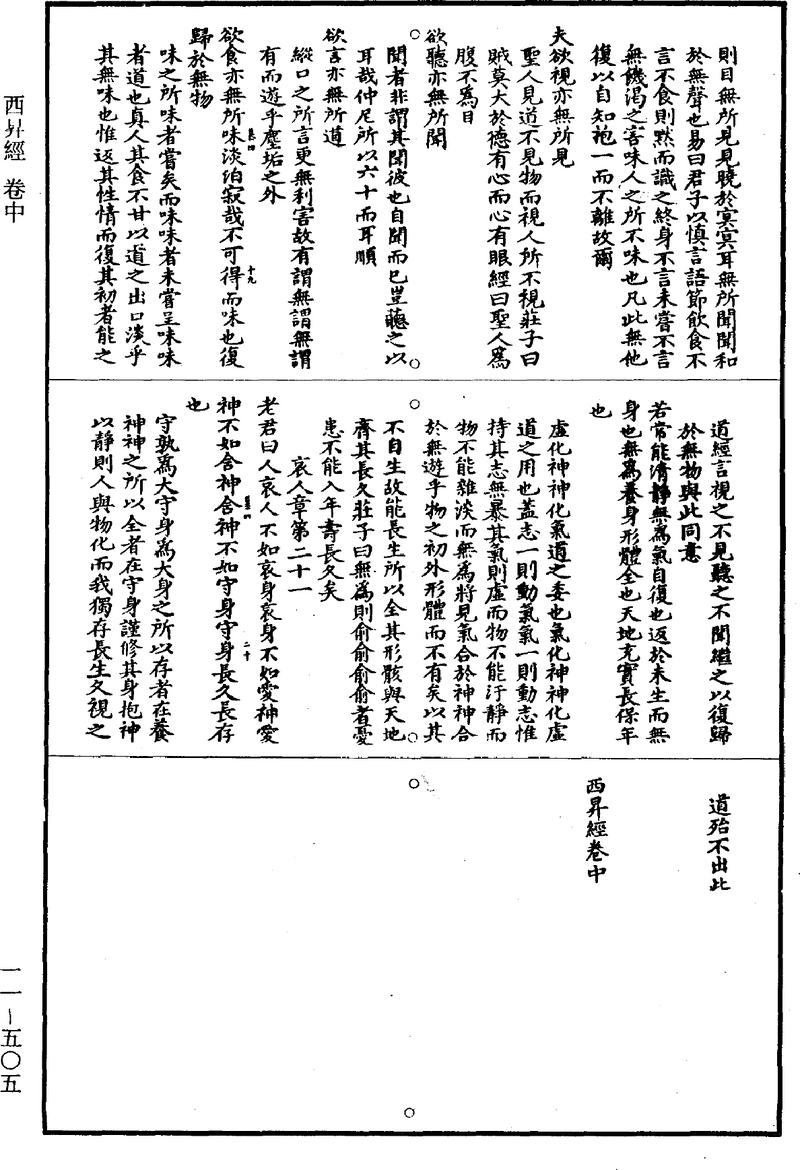 則目無所見見曉於冥冥耳無所聞聞和
於無聲也易曰君子以慎言語節飲食不
言不食則默而識之終身不言未嘗不言
無饑渴之害味人之所不味也凡此無他
復以自知抱一而不離故爾
夫欲視亦無所見
聖人見道不見物而視人所不視莊子曰
賊莫大於德有心而心有眼經曰聖人為
腹不為目
欲聽亦無所聞
聞者非謂其聞彼也自聞而已豈聽之以
耳哉仲尼所以六十而耳順
欲言亦無所道
縱口之所言更無利害故有謂無謂無謂
有而遊乎塵垢之外
欲食亦無所味淡泊寂哉不可得而味也復
十九
歸於無物
味之所味者嘗矣而味味者未嘗呈味味
者道也真人其食不甘以道之出口淡乎
其無味也惟返其性情而復其初者能之
道經言視之不見聽之不聞繼之以復歸
於無物與此同意
若常能清靜無為氣自復也返於未生而無
身也無為養身形體全也天地充實長保年
也
虛化神神化氣道之委也氣化神神化虛
道之用也蓋志一則動氣氣一則動志惟
持其志無暴其氣則虛而物不能汙靜而
物不能雜淡而無為將見氣合於神神合
於無遊乎物之初外形體而不有矣以其
不自生故能長生所以全其形骸與天地
齊其長久莊子曰無為則俞俞俞俞者憂
患不能入年壽長久矣
哀人章第二十一
老君曰人哀人不如哀身哀身不如愛神愛
神不如舍神舍神不如守身守身長久長存
二十
也
守孰為大守身為大身之所以存者在養
神神之所以全者在守身謹修其身抱神
以靜則人與物化而我獨存長生久視之
道殆不出此
西昇經卷中
西昇經 卷中
一一－五〇五